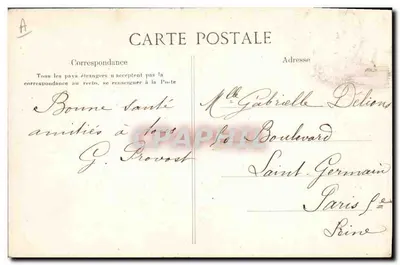 A
CARTE POSTALE
Correspondance
Tous les pays étrangers n'acceptent pas la
correspondance au recto, se renseigner à la Poste
Bonne santé
amitiés à tous
G. Provost
Adresse
Mlle Gabrielle Délions
Boulevard
Saint-Germain
Paris 5e
Seine